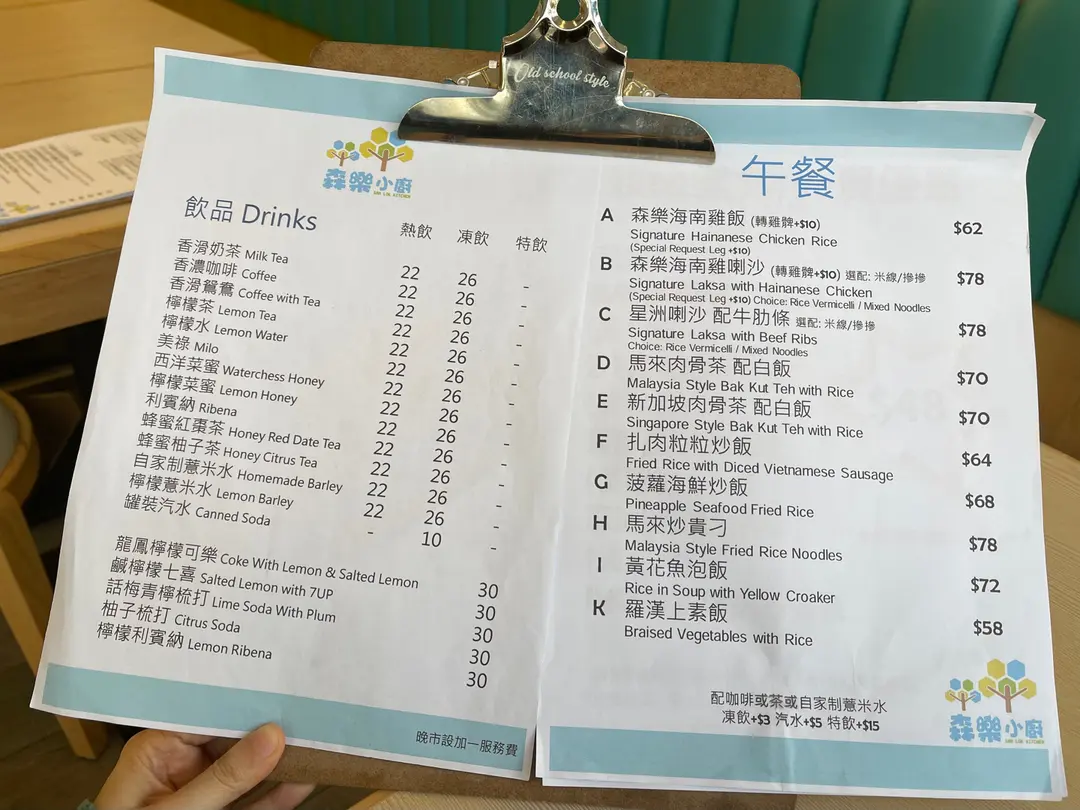 Old school style
森樂小廚
飲品 Drinks 熱飲 凍飲 特飲
香滑奶茶 Milk Tea 22 26 -
香濃咖啡 Coffee 22 26 -
香滑鴛鴦 Coffee with Tea 22 26 -
檸檬茶 Lemon Tea 22 26 -
檸檬水 Lemon Water 22 26 -
美祿 Milo 22 26 -
西洋菜蜜 Waterchess Honey 22 26 -
檸檬菜蜜 Lemon Honey 22 26 -
利賓納 Ribena 22 26 -
蜂蜜紅棗茶 Honey Red Date Tea 22 26 -
蜂蜜柚子茶 Honey Citrus Tea 22 26 -
自家制薏米水 Homemade Barley 22 26 -
檸檬薏米水 Lemon Barley 22 26 -
罐裝汽水 Canned Soda - 10 -
龍鳳檸檬可樂 Coke With Lemon & Salted Lemon 30
鹹檸檬七喜 Salted Lemon with 7UP 30
話梅青檸梳打 Lime Soda With Plum 30
柚子梳打 Citrus Soda 30
檸檬利賓納 Lemon Ribena 30
晚市設加一服務費
午餐
A 森樂海南雞飯 (轉雞髀+$10) $62
Signature Hainanese Chicken Rice
(Special Request Leg +$10)
B 森樂海南雞喇沙 (轉雞髀+$10) 選配: 米線/摻摻 $78
Signature Laksa with Hainanese Chicken
(Special Request Leg +$10) Choice: Rice Vermicelli / Mixed Noodles
C 星洲喇沙 配牛肋條 選配: 米線/摻摻 $78
Signature Laksa with Beef Ribs
Choice: Rice Vermicelli / Mixed Noodles
D 馬來肉骨茶 配白飯 $70
Malaysia Style Bak Kut Teh with Rice
E 新加坡肉骨茶 配白飯 $70
Singapore Style Bak Kut Teh with Rice
F 扎肉粒粒炒飯 $64
Fried Rice with Diced Vietnamese Sausage
G 菠蘿海鮮炒飯 $68
Pineapple Seafood Fried Rice
H 馬來炒貴刁 $78
Malaysia Style Fried Rice Noodles
I 黃花魚泡飯 $72
Rice in Soup with Yellow Croaker
K 羅漢上素飯 $58
Braised Vegetables with Rice
配咖啡或茶或自家制薏米水
凍飲+$3 汽水+$5 特飲+$15
森樂小廚